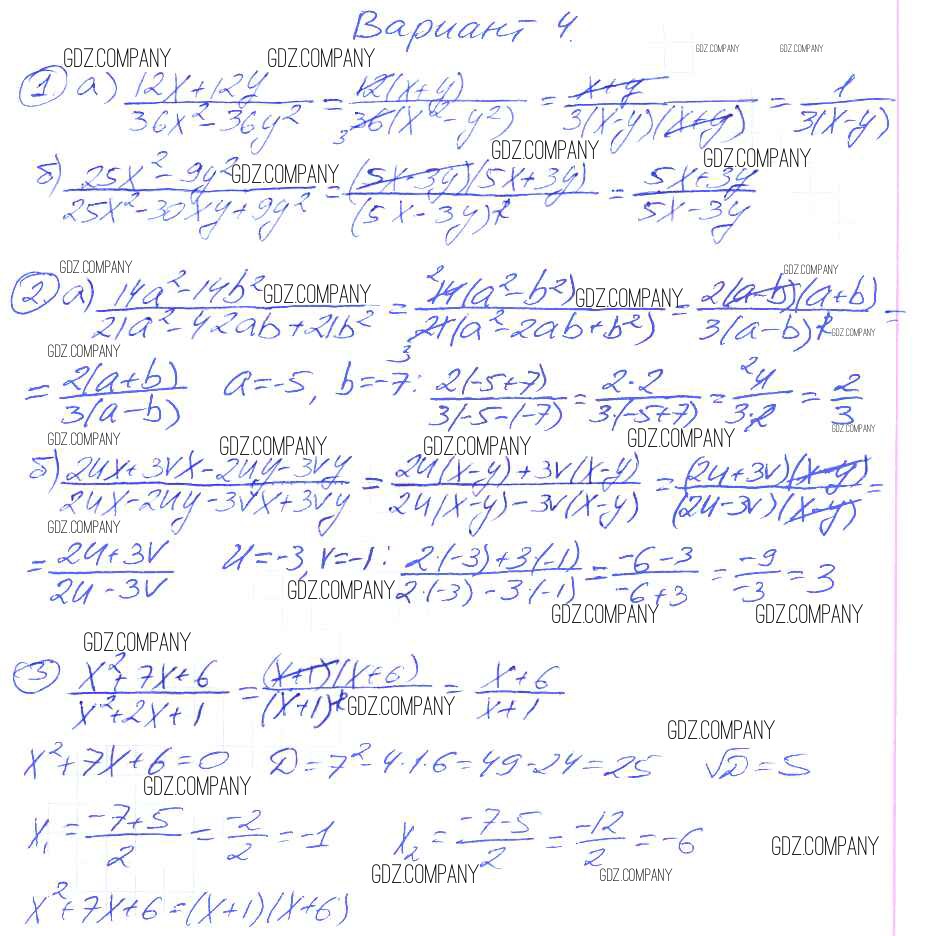 Вариант 4.
GDZ.COMPANY GDZ.COMPANY GDZ.COMPANY GDZ.COMPANY
① а) (12x+12y)/(36x²-36y²) = 12(x+y)/36(x²-y²) 3 = (x+y)/3(x-y)(x+y) = 1/3(x-y)
GDZ.COMPANY GDZ.COMPANY
б) (25x²-9y²)/(25x²-30xy+9y²) GDZ.COMPANY = (5x-3y)(5x+3y)/(5x-3y)² = (5x+3y)/(5x-3y)
GDZ.COMPANY GDZ.COMPANY
② а) (14a²-14b²)/(21a²-42ab+21b²) GDZ.COMPANY = 2 14(a²-b²)/21(a²-2ab+b²) 3 GDZ.COMPANY = 2(a-b)(a+b)/3(a-b)² =
GDZ.COMPANY GDZ.COMPANY
= 2(a+b)/3(a-b) a=-5, b=-7: 2(-5+7)/3(-5-(-7)) = 2·2/3·(-5+7) = 2 4/3·2 = 2/3
GDZ.COMPANY GDZ.COMPANY GDZ.COMPANY GDZ.COMPANY GDZ.COMPANY
б) (2ux+3vx-2uy-3vy)/(2ux-2uy-3vx+3vy) = (2u(x-y)+3v(x-y))/(2u(x-y)-3v(x-y)) = (2u+3v)(x-y)/(2u-3v)(x-y) =
GDZ.COMPANY
= (2u+3v)/(2u-3v) u=-3, v=-1: (2·(-3)+3(-1))/(2·(-3)-3·(-1)) = (-6-3)/(-6+3) = -9/-3 = 3
GDZ.COMPANY GDZ.COMPANY GDZ.COMPANY
GDZ.COMPANY
③ (x²+7x+6)/(x²+2x+1) = (x+1)(x+6)/(x+1)² GDZ.COMPANY = (x+6)/(x+1)
GDZ.COMPANY
x²+7x+6=0 D=7²-4·1·6=49-24=25 √D=5
GDZ.COMPANY
x₁ = (-7+5)/2 = -2/2 = -1 x₂ = (-7-5)/2 = -12/2 = -6 GDZ.COMPANY
GDZ.COMPANY GDZ.COMPANY
x²+7x+6=(x+1)(x+6)